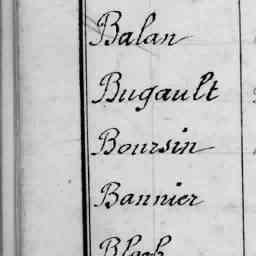 Balan
Bugault
Boursin
Bannier
Bloch